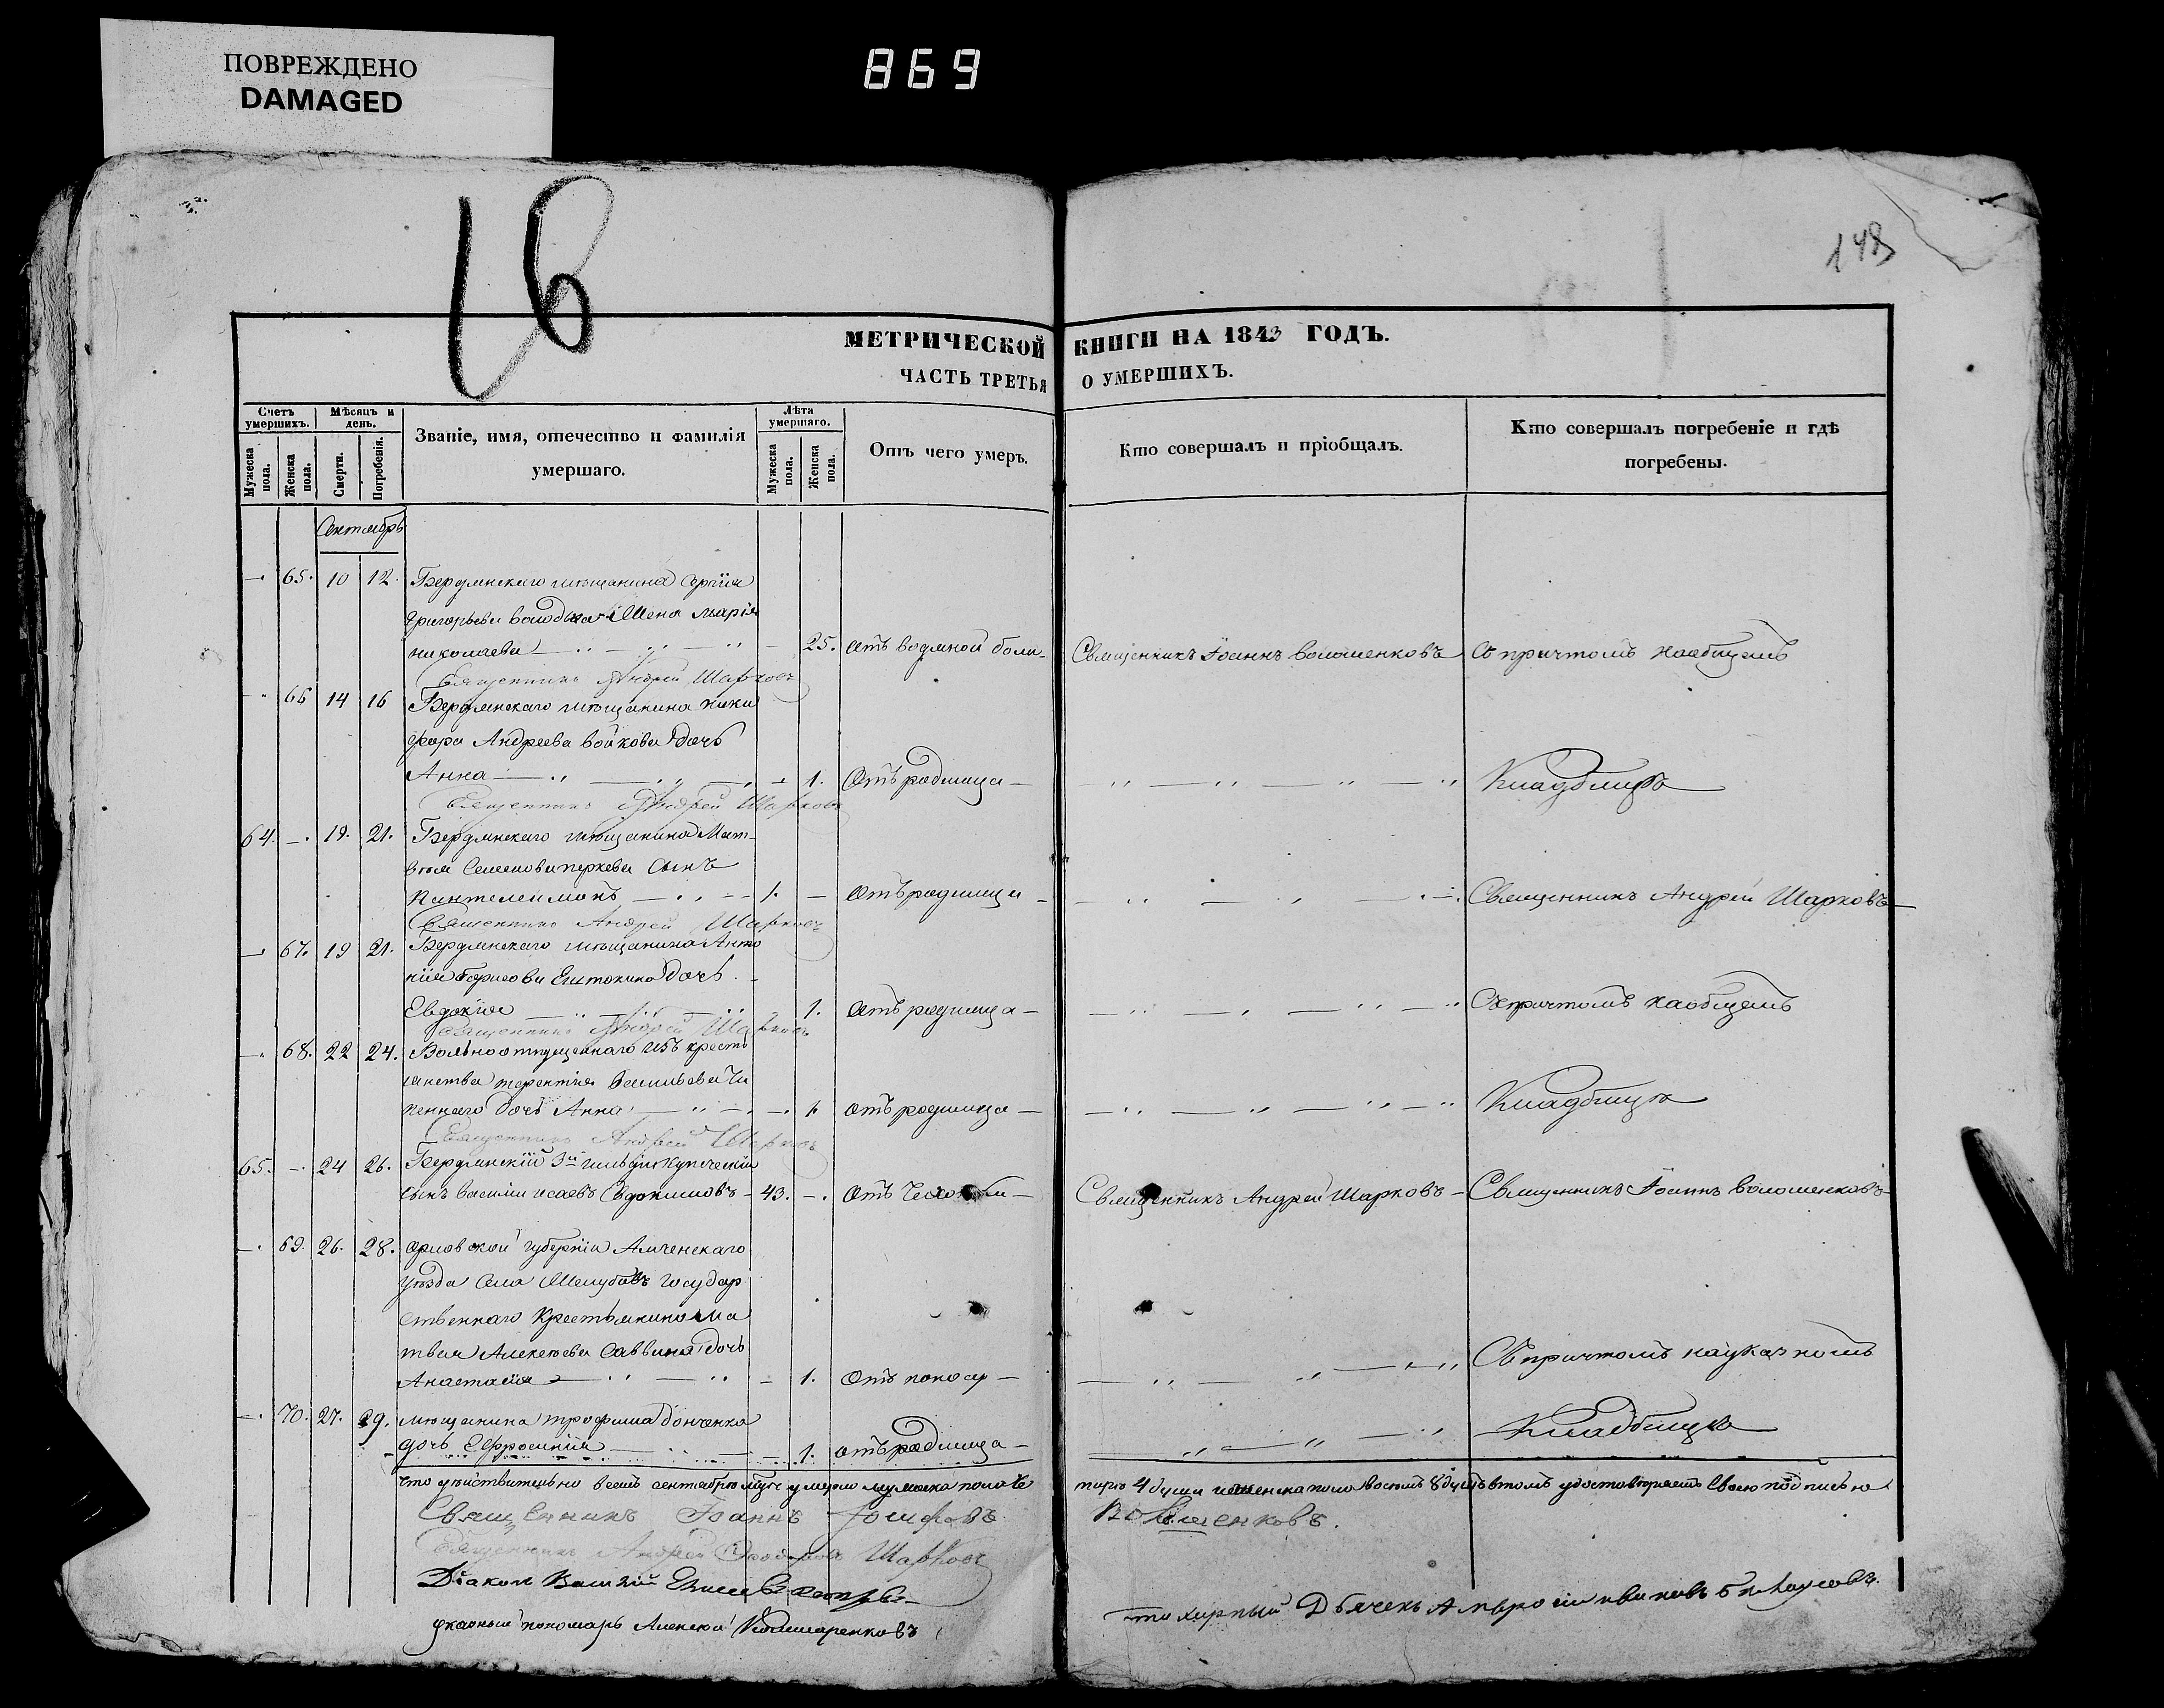 ПОВРЕЖДЕНО
DAMAGED
869
16
148
МЕТРИЧЕСКОЙ КНИГИ НА 1843 ГОДЪ.
ЧАСТЬ ТРЕТЬЯ О УМЕРШИХЪ.
Счетъ умершихъ.
Мужеска пола.
Женска пола.
Мѣсяцъ и день.
Смерти.
Погребенія.
Званіе, имя, отечество и фамилія
умершаго.
Лѣта умершаго.
Мужеска пола.
Женска пола.
Отъ чего умеръ.
Кто совершалъ и пріобщалъ.
Кто совершалъ погребеніе и гдѣ
погребены.
Сентябрь
65. 10 12. Бердянскаго мѣщанина Сергія
Григорьева жена Марія
Николаева 25. отъ водяной Священникъ Іоаннъ Волошенковъ Съ причтомъ на общемъ
Священникъ Андрей Шарковъ
66 14 16 Бердянскаго мѣщанина Ники
фора Андреева Войкова дочь
Анна 1. Отъ родимца Кладбищѣ
Священникъ Андрей Шарковъ
64. 19. 21. Бердянскаго мѣщанина Мат-
вѣя Семенова сынъ
Пантелеимонъ 1. отъ родимца Священникъ Андрей Шарковъ
Священникъ Андрей Шарковъ
67. 19 21. Бердянскаго мѣщанина Анто
нія Борисова дочь
Евдокія 1. отъ родимца Съ причтомъ на общемъ
Священникъ Андрей Шарковъ
68. 22 24. Вольноотпущеннаго изъ кресть
янства Терентія Васильева
дочь Анна 1. отъ родимца Кладбищѣ
Священникъ Андрей Шарковъ
65. 24 26. Бердянскій 3й гильдіи купеческій
сынъ Василій Исаевъ Евдокимовъ 43. отъ Священникъ Андрей Шарковъ Священникъ Іоаннъ Волошенковъ
69. 26. 28. Орловской губерніи Амченскаго
уѣзда села государ
ственнаго крестьянина Ма
твея Алексѣева Саввина дочь
Анастасія 1. отъ поноса Съ причтомъ на указномъ
70. 27. 29. мѣщанина Трофима Донченка
дочь Ефросинія 1. отъ родимца Кладбищѣ
Что дѣйствительно всемъ сентябрѣ умерло мужеска пола че тыре 4 души женска пола восемь 8 душъ втомъ удостовѣряетъ свою подписью
Священникъ Іоаннъ Іосифовъ Волошенковъ.
Священникъ Андрей Шарковъ
Діаконъ Василій
указный пономарь Алексѣй Дьячекъ Амвросій Ивановъ